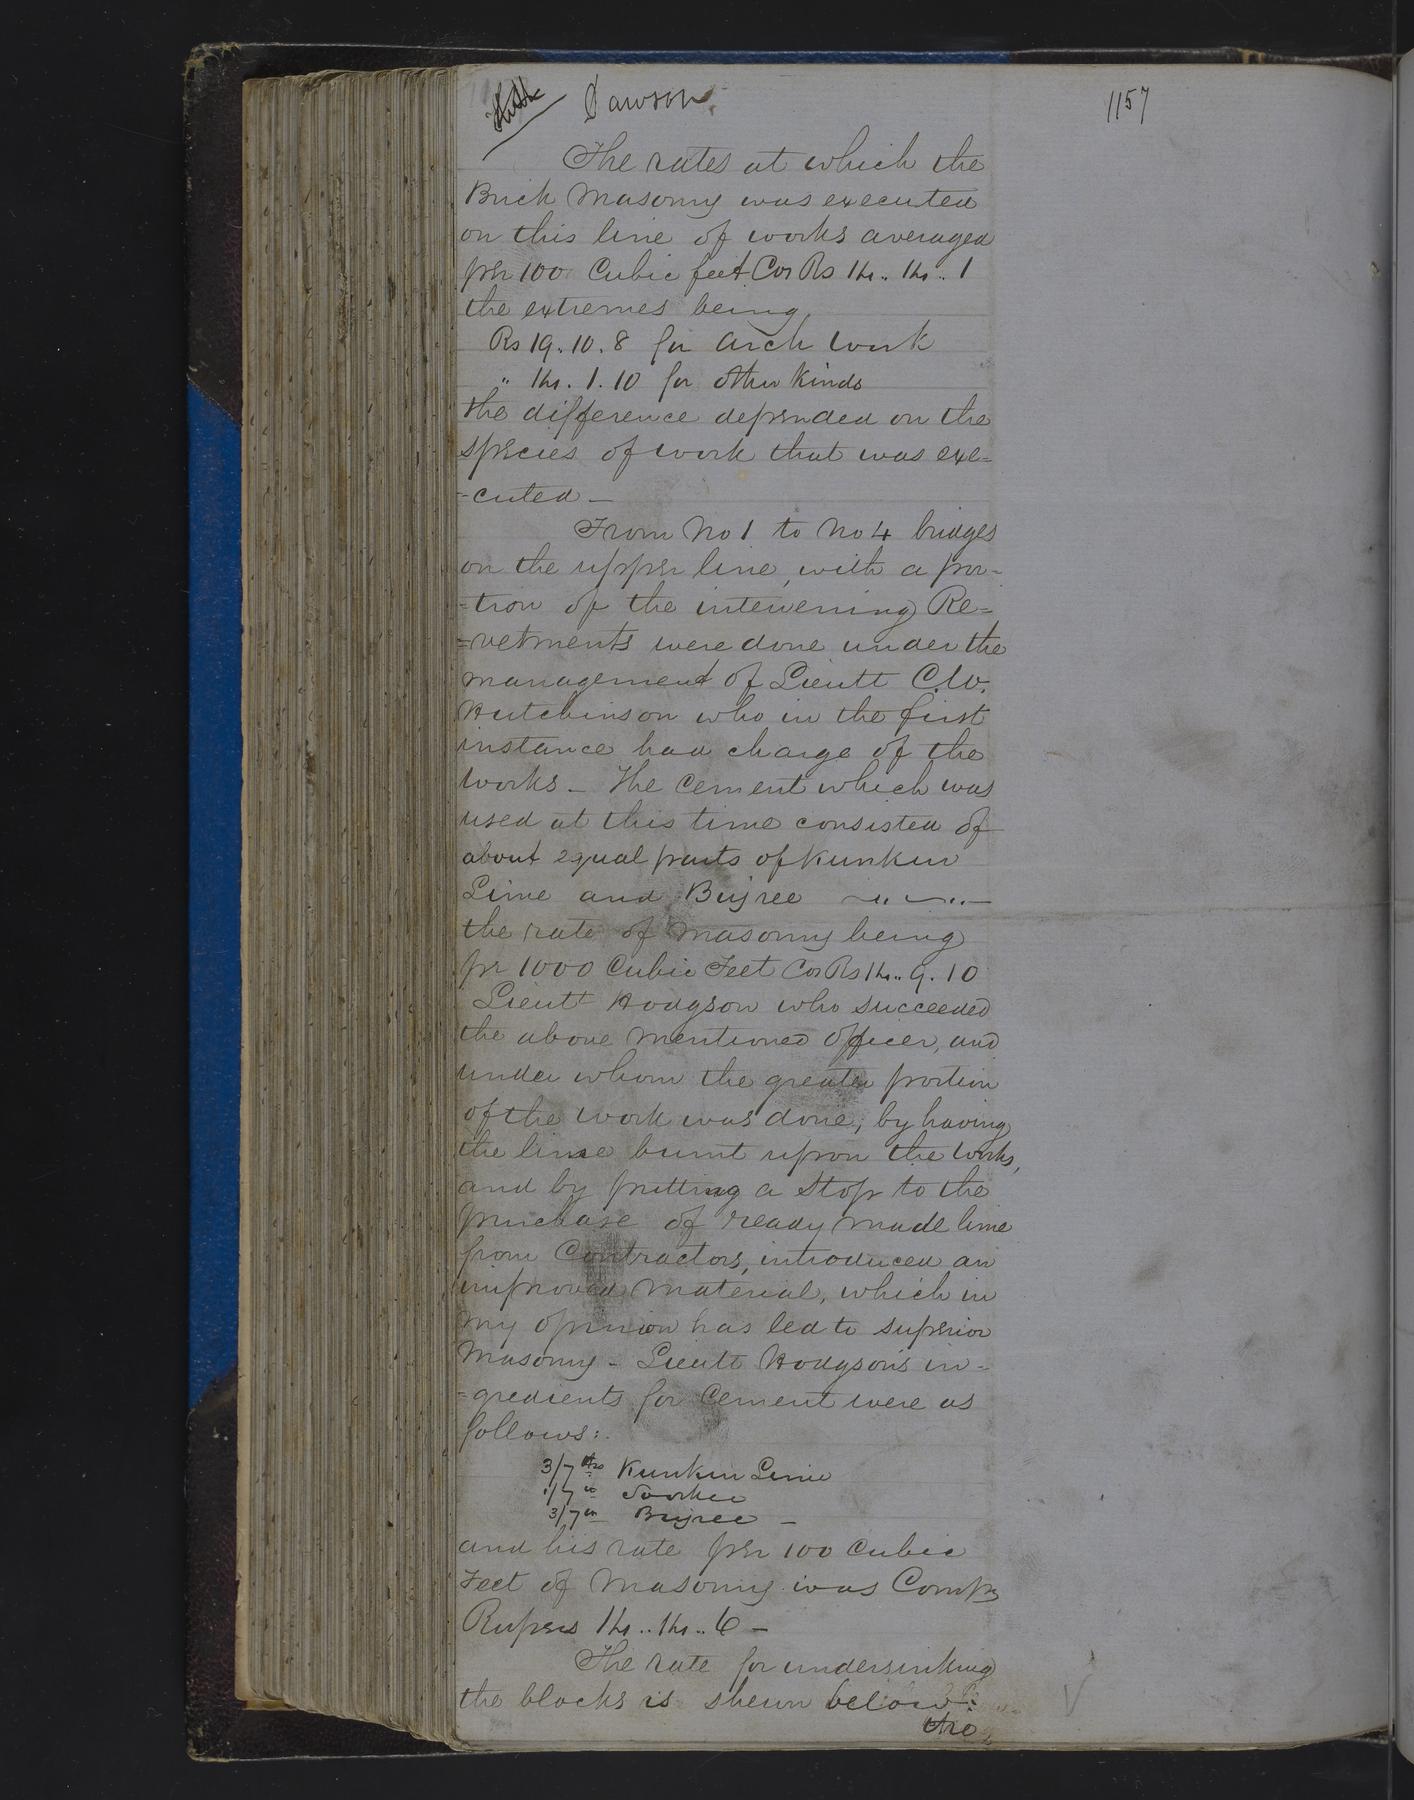 Dawson
1157
The rates at which the
Brick Masonry was executed
on this line of works averaged
per 100 Cubic feet Cos Rs 14..14..1
the extremes being
Rs 19.10.8 for Arch work
" 14.1.10 for other kinds
the difference depended on the
species of work that was exe=
=cuted_
From No 1 to No 4 bridges
on the upper line, with a por=
=tion of the intervening Re=
=vetments were done under the
management of Lieutt C.W.
Hutchinson who in the first
instance had charge of the
works_ The Cement which was
used at this time consisted of
about equal parts of Kunkur
Lime and Bujree
the rate of Masonry being
pr 1000 Cubic Feet Cos Rs 14..9.10
Lieutt Hodgson who succeeded
the above mentioned Officer, and
under whom the greater portion
of the work was done, by having
the lime burnt upon the works,
and by putting a stop to the
purchase of ready made lime
from Contractors, introduced an
improved Material, which in
my opinion has led to superior
Masonry_ Lieutt Hodgson's in=
=gredients for Cement were as
follows:
3/7ths Kunkur Lime
1/7 " Soorkee
3/7 " Bujree _
and his rate per 100 Cubic
Feet of Masonry was Comps
Rupees 14..14..6 _
The rate for undersinking
the blocks is shewn below:
the